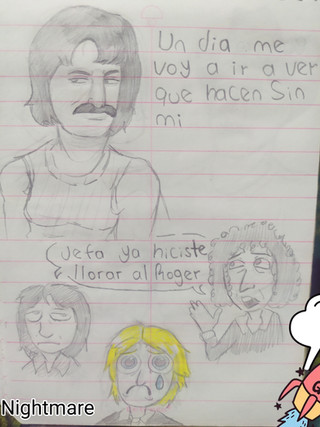 Un dia me
voy a ir a ver
que hacen Sin
mi
Jefa ya hiciste
llorar al Roger
Nightmare